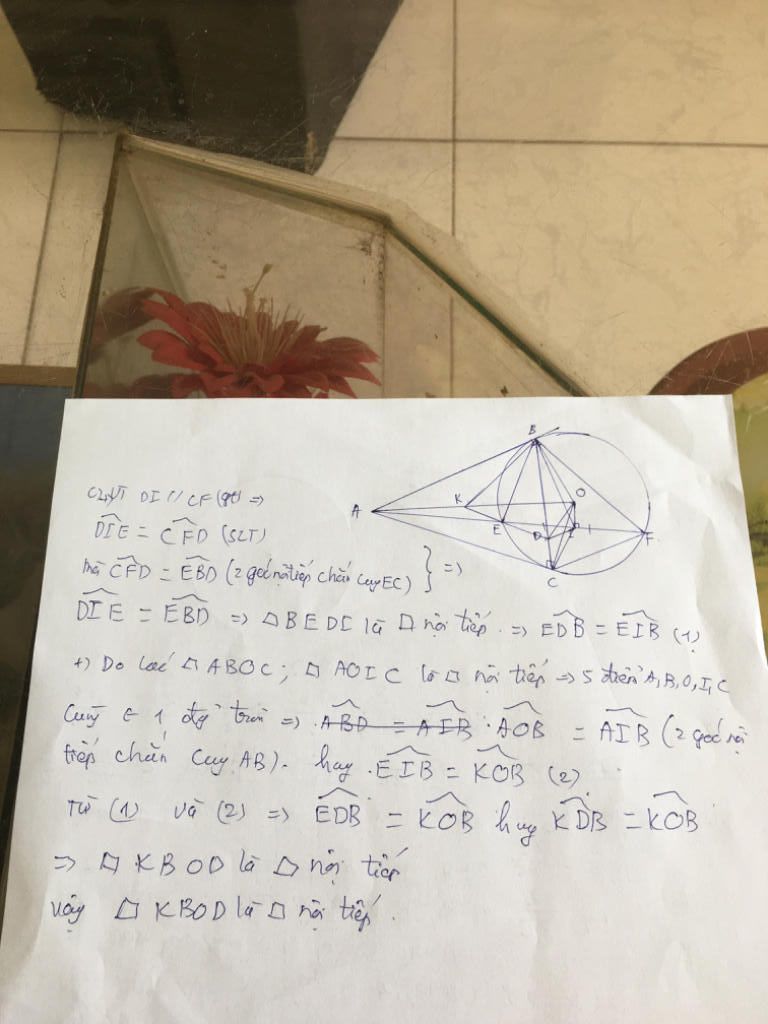 B
A
K
O
E
D
I
F
C
DI // CF (gt) =>
DIE = CFD (SLT)
mà CFD = EBD (2 góc nội tiếp chắn cung EC) } =>
DIE = EBD => □ BEDI là □ nội tiếp => EDB = EIB (1)
+) Do các □ ABOC ; □ AOIC là □ nội tiếp => 5 điểm A, B, O, I, C
cùng ∈ 1 đg tròn => ABD = AIB . AOB = AIB (2 góc nội
tiếp chắn cung AB). hay EIB = KOB (2)
Từ (1) và (2) => EDB = KOB hay KDB = KOB
=> □ KBOD là □ nội tiếp
vậy □ KBOD là □ nội tiếp.